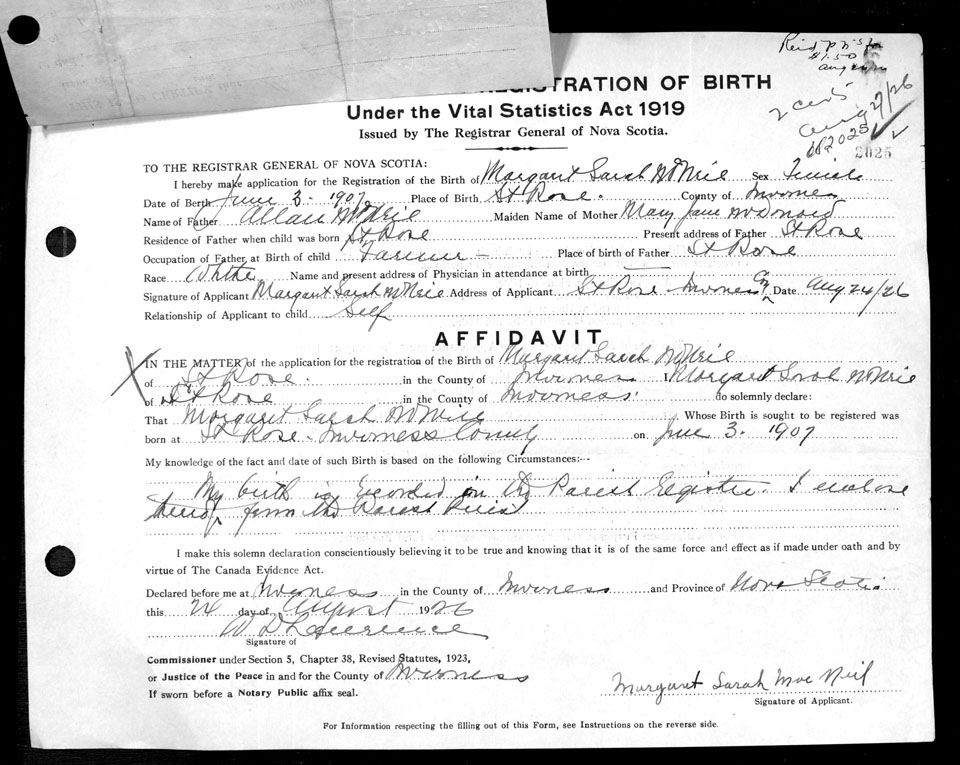 $1.50
2 certs
Aug 27/26
2025
2025
REGISTRATION OF BIRTH
Under the Vital Statistics Act 1919
Issued by The Registrar General of Nova Scotia.
TO THE REGISTRAR GENERAL OF NOVA SCOTIA:
I hereby make application for the Registration of the Birth of Margaret Sarah McNeil Sex Female
Date of Birth June 3. 1907. Place of Birth St Rose. County of Inverness
Name of Father Allan McNeil Maiden Name of Mother Mary Jane McDonald
Residence of Father when child was born St Rose Present address of Father St Rose
Occupation of Father at Birth of child Farmer - Place of birth of Father St Rose
Race White Name and present address of Physician in attendance at birth —
Signature of Applicant Margaret Sarah McNeil Address of Applicant St Rose Inverness Co Date Aug 24/26
Relationship of Applicant to child Self
AFFIDAVIT
X IN THE MATTER of the application for the registration of the Birth of Margaret Sarah McNeil
of St Rose. in the County of Inverness Margaret Sarah McNeil
of St Rose in the County of Inverness. do solemnly declare:
That Margaret Sarah McNeil Whose Birth is sought to be registered was
born at St Rose - Inverness County on June 3. 1907
My knowledge of the fact and date of such Birth is based on the following Circumstances:—
My birth is recorded in the Parish Register. I enclose
from the Parish Priest
I make this solemn declaration conscientiously believing it to be true and knowing that it is of the same force and effect as if made under oath and by
virtue of The Canada Evidence Act.
Declared before me at Inverness in the County of Inverness and Province of Nova Scotia
this 24 day of August 1926
W D Lawrence
Signature of
Commissioner under Section 5, Chapter 38, Revised Statutes, 1923,
or Justice of the Peace in and for the County of Inverness
If sworn before a Notary Public affix seal.
Margaret Sarah Mac Neil
Signature of Applicant.
For Information respecting the filling out of this Form, see Instructions on the reverse side.